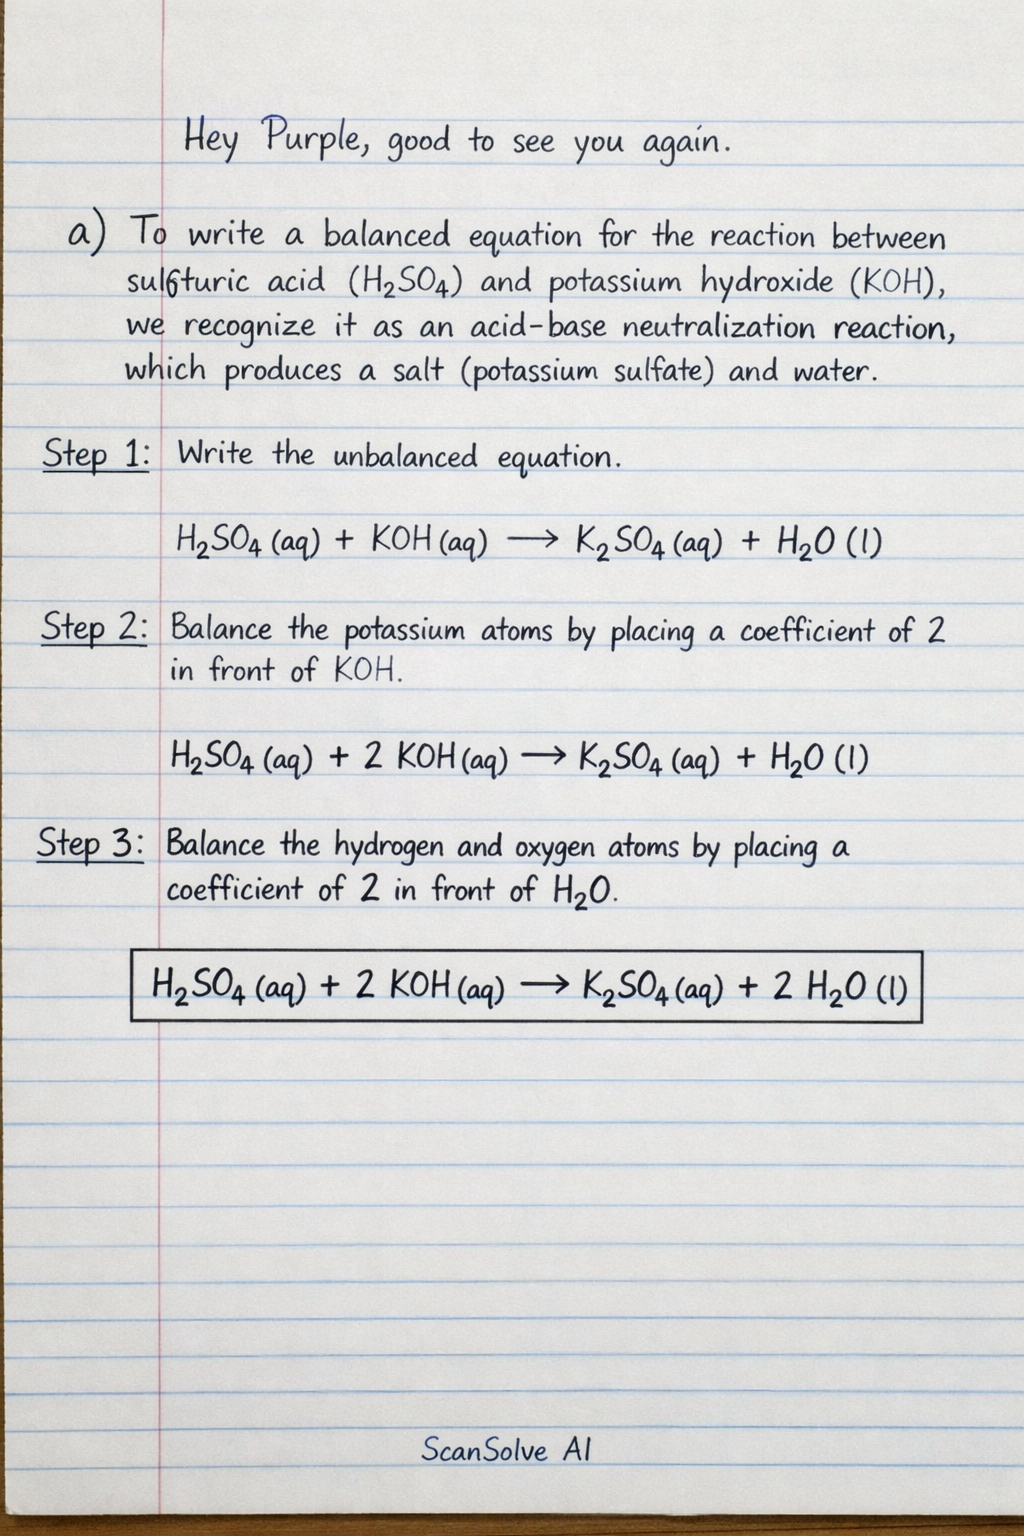 Hey Purple, good to see you again.
a) To write a balanced equation for the reaction between
acid (H₂SO₄) and potassium hydroxide (KOH),
we recognize it as an acid-base neutralization reaction,
which produces a salt (potassium sulfate) and water.
Step 1: Write the unbalanced equation.
H₂SO₄ (aq) + KOH (aq) ⟶ K₂SO₄ (aq) + H₂O (l)
Step 2: Balance the potassium atoms by placing a coefficient of 2
in front of KOH.
H₂SO₄ (aq) + 2 KOH (aq) ⟶ K₂SO₄ (aq) + H₂O (l)
Step 3: Balance the hydrogen and oxygen atoms by placing a
coefficient of 2 in front of H₂O.
H₂SO₄ (aq) + 2 KOH (aq) ⟶ K₂SO₄ (aq) + 2 H₂O (l)
ScanSolve AI